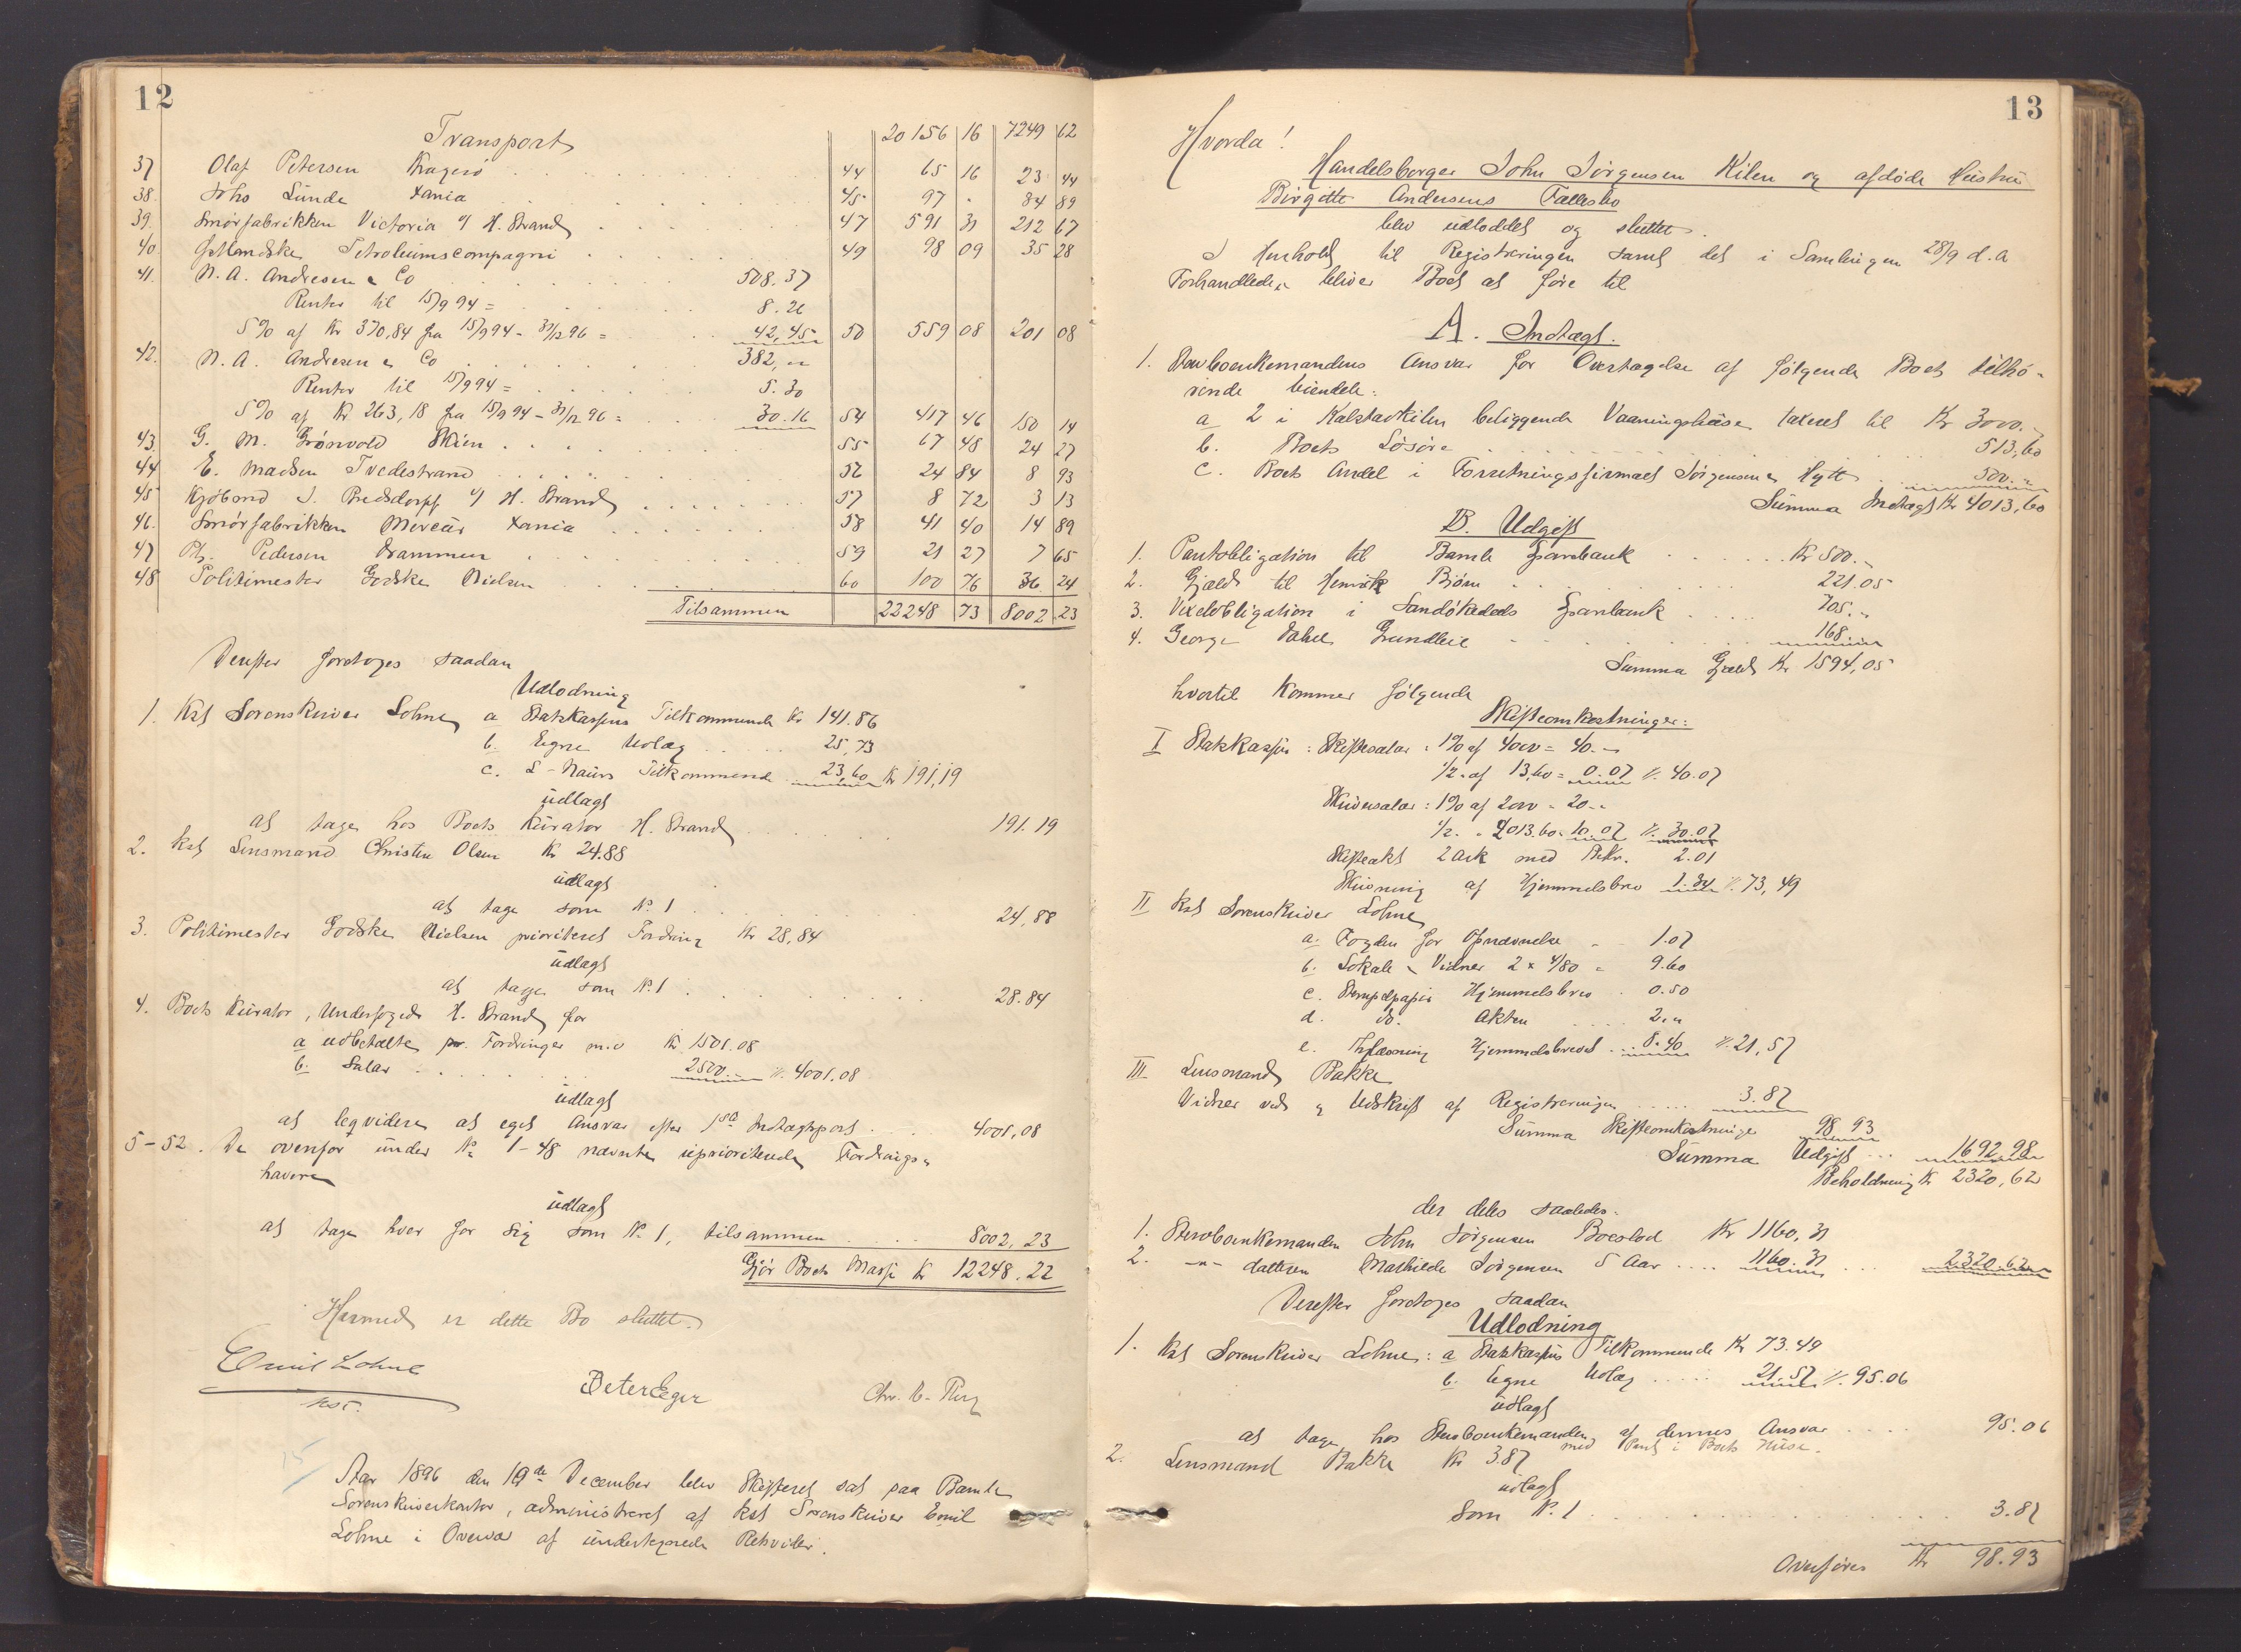 12
Transport 20156 16 7249 62
37 Olaf Petersen Kragerø 44 65 16 23 44
38. Johs Lunde Xania 45 97 " 34 89
39. Smørfabrikken Victoria v/ H. Strand 47 591 31 212 67
40. Østlandske Petroliumscompagni 49 98 09 35 28
41. N. A. Andresen & Co 508.37
Renter til 15/9 94 = 8.26
5% af Kr 370,84 fra 15/9 94 - 31/12 96 = 42,45 50 559 08 201 08
42. N. A. Andresen & Co 382,"
Renter til 15/9 94 = 5.30
5% af Kr 263,18 fra 15/9 94 - 31/12 96 = 30.16 54 417 46 150 14
43 G. M. Grønvold Skien 55 67 48 24 27
44 E. Madsen Tvedestrand 56 24 84 8 93
45 Kjøbmd J. Bredsdorff v/ H. Strand 57 8 72 3 13
46. Smørfabrikken Mercur Xania 58 41 40 14 89
47 Pedersen Drammen 59 21 27 7 65
48 Politimester Godske Nielsen 60 100 76 36 24
Tilsammen 22248 73 8002.23
Derefter foretoges saadan
Udlodning
1. Kst Sorenskriver Lohne a Statskassens Tilkommende Kr 141.86
b. Egne Udlæg 25,73
c. L-Maurs Tilkommende 23,60 Kr 191,19
udlagt
at tage hos Boets Kurator H. Strand 191.19
2. Kst Lensmand Christen Olsen Kr 24.88
udlagt
at tage som No. 1 24,88
3. Politimester Godske Nielsen prioriteret Fordring Kr 28,84
udlagt
at tage som No. 1 28.84
4. Boets Kurator, Underfoged H. Strand for
a udbetalte pr. Fordringer m.v Kr 1501.08
b. Salær 2500." 4001.08
udlagt
at leqvidere at eget Ansvar efter 1ste Indtægtspost 4001,08
5-52. De ovenfor under No 1-48 nævnte uprioriterede Fordrings=
havere
udlagt
at tage hver for sig som No. 1, tilsammen 8002,23
Gjør Boets Masse Kr 12248.22
Hermed er dette Bo sluttet.
Emil Lohne
kst.
Peter Eger
Chr. C. Thor
15
Aar 1896 den 19de December blev Skifteret sat paa Bamle
Sorenskriverkontor, administreret af kst Sorenskriver Emil
Lohne i Overvær af undertegnede Retsvidner.
13
Hvorda!
Handelsborger John Jørgensen Kilen og afdøde Hustru
Birgitte Andersens Fællesbo
blev udloddet og sluttet.
I Henhold til Registreringen samt det i Samlingen 28/9 d.A
Forhandlede bliver Boet at føre til
A. Indtægt.
1. Stervboenkemandens Ansvar for Overtagelse af følgende Boet tilhø-
rende Eiendele:
a 2 i Kalstadkilen beliggende Vaaningshuse taxeret til Kr 3000."
b. Boets Løsøre 513,60
c. Boets Andel i Forretningsfirmaet Jørgensen & Hytt 500."
Summa Indtægt Kr 4013,60
B. Udgift
1. Pantobligation til Bamle Sparebank Kr 500."
2. Gjæld til Henrik Bjørn 221.05
3. Vexelobligation i Sandøkedals Sparebank 705."
4. George Dahls Grundleie 168."
Summa Gjæld Kr 1594,05
hvortil kommer følgende
Skifteomkostninger:
I Statskassen: Skiftesalær: 1% af 4000 = 40."
1/2 " af 13,60 = 0.07 40.07
Skriversalær: 1% af 2000 = 20."
1/2 " " 2013.60 = 10.07 30.07
Skifteakt 2 Ark med Bekr. 2.01
Skrivning af Hjemmelsbrev 1.34 73,49
II Kst Sorenskriver Lohne
a. Fogden for Opnævnelse 1.07
b. Lokale & Vidner 2 x 4/80 = 9.60
c. Stempelpapir Hjemmelsbrev 0.50
d. do. Akten 2."
e. Thglæsning Hjemmelsbrevet 8.40 21,57
III Lensmand Bakke
Vidner ved & Udskrift af Registreringen 3.87
Summa Skifteomkostninger 98 93
Summa Udgift 1692,98
Beholdning Kr 2320,62
der deles saaledes:
1. Stervboenkemanden John Jørgensen Boeslod Kr 1160,31
2. -"- datteren Mathilde Jørgensen 5 Aar 1160.31 2320.62
Derefter foretoges saadan
Udlodning
1. Kst Sorenskriver Lohne: a Statskassens Tilkommende Kr 73.49
b. Egne Udlæg 21.57 95.06
udlagt
at tage hos Stervboenkemanden af dennes Ansvar 95.06
med Pant i Boets Huse.
2. Lensmand Bakke Kr 3.87
udlagt
Som No. 1 3.87
Overføres Kr 98.93